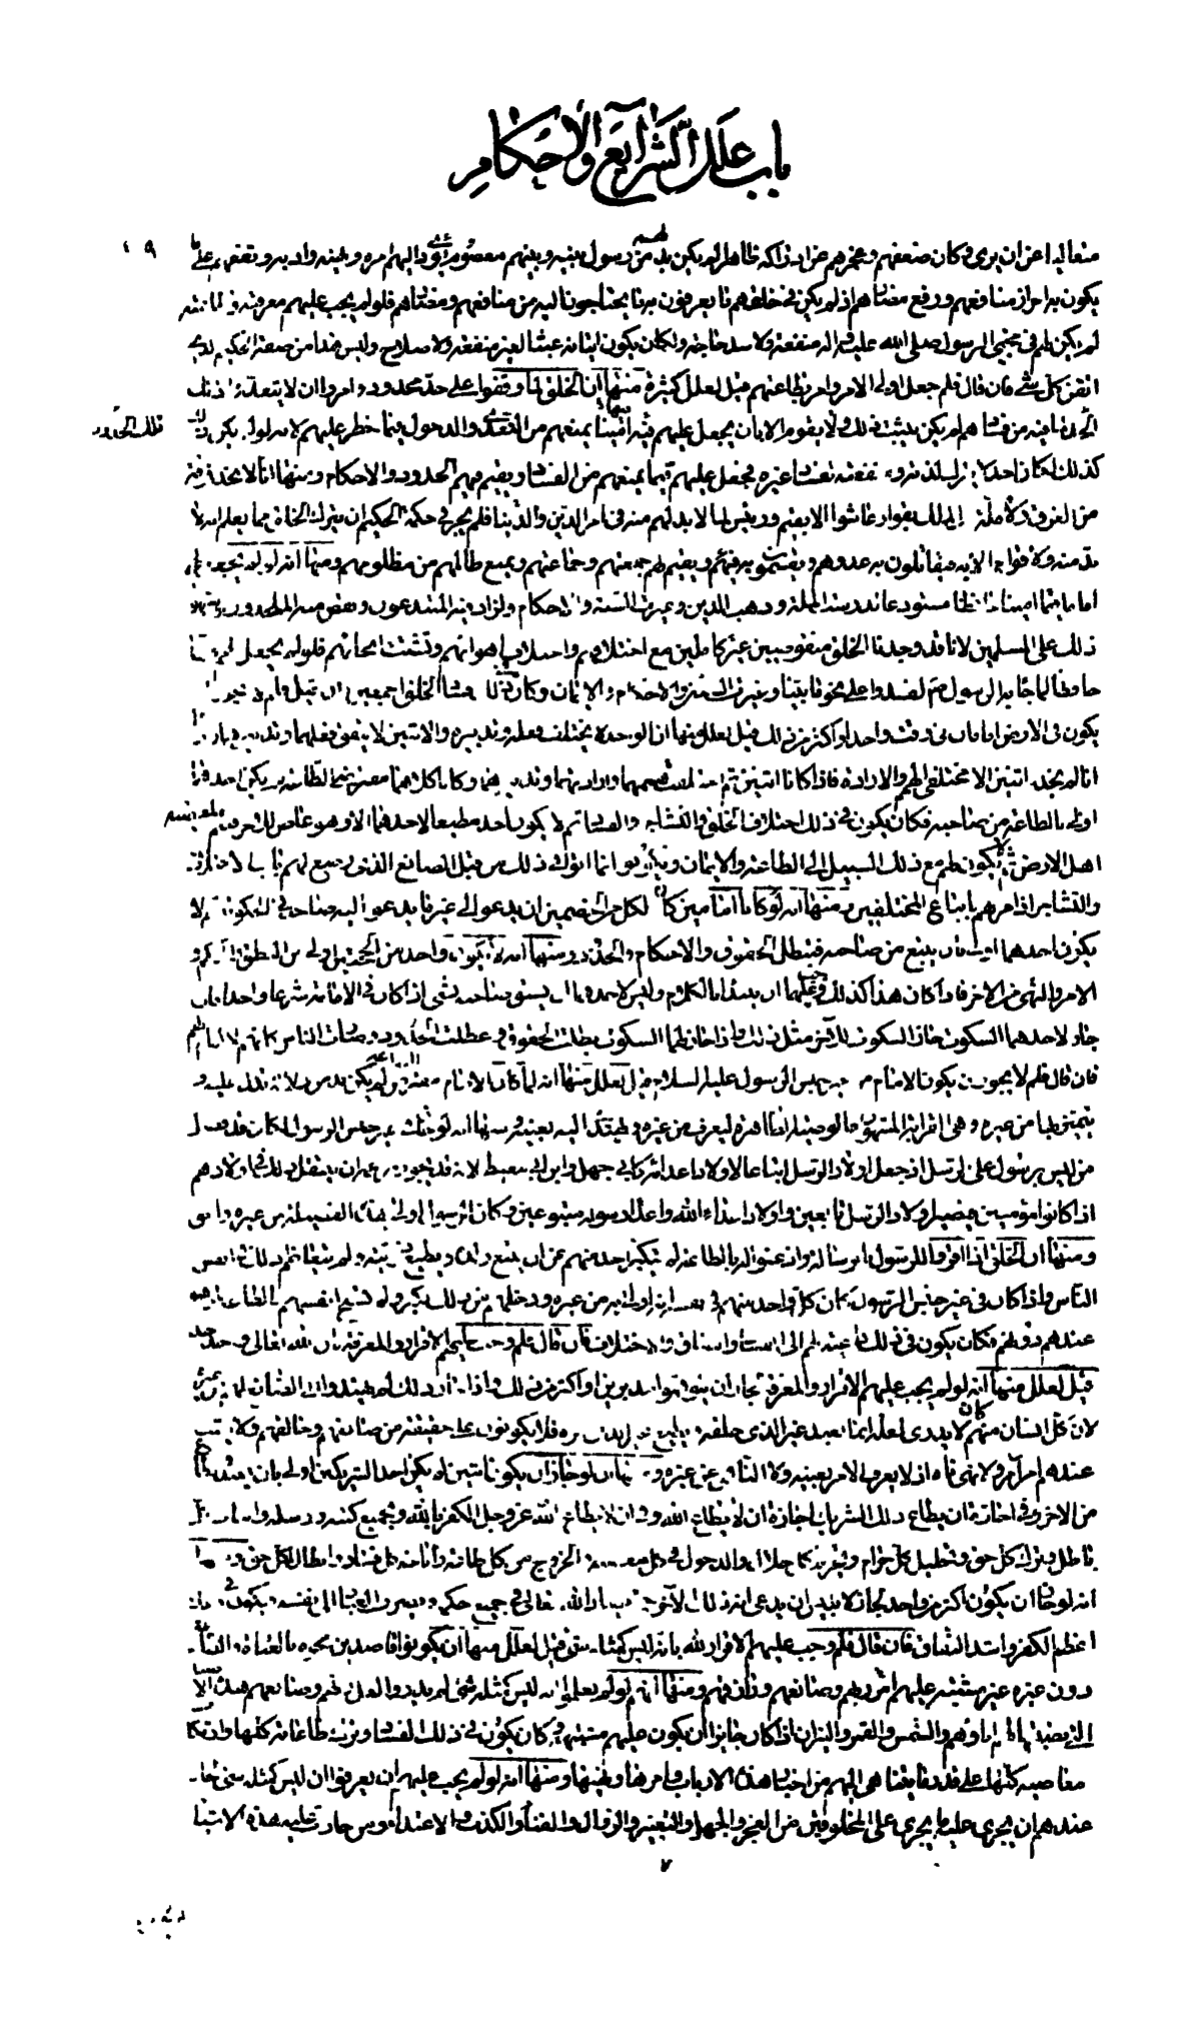 باب علل الشرايع والاحكام
متعاليا عن ان يرى وكان ضعفهم وعجزهم عن ادراكه ظاهرا لم يكن بد لهم من رسول بينه وبينهم معصوم يؤدي اليهم امره ونهيه وادبه ويقفهم على ما
يكون به احراز منافعهم ودفع مضارهم اذ لم يكن في خلقهم ما يعرفون به ما يحتاجون اليه من منافعهم ومضارهم فلو لم يجب عليهم معرفته وطاعته
لم يكن لهم في مجيئ الرسول صلى الله عليه واله منفعة ولا سد حاجة ولكان يكون اتيانه عبثا لغير منفعة ولا صلاح وليس هذا من صفة الحكيم الذي
اتقن كل شئ فان قال فلم جعل اولي الامر وامر بطاعتهم قيل لعلل كثيرة منها ان الخلق لما وقفوا على حد محدود وامروا ان لا يتعدوا تلك
الحدود لما فيه من فسادهم لم يكن يثبت ذلك ولا يقوم الا بان يجعل عليهم فيه امينا يمنعهم من التعدي والدخول فيما خطر عليهم لانه لو لم يكن ذلك
تلك الحدود
كذلك لكان احد لا يترك لذته ومنفعته لفساد غيره فجعل عليهم قيما يمنعهم من الفساد ويقيم فيهم الحدود والاحكام ومنها انا لا نجد فرقة
من الفرق ولا ملة من الملل بقوا وعاشوا الا بقيم ورئيس لما لا بد لهم منه في امر الدين والدنيا فلم يجز في حكمة الحكيم ان يترك الخلق مما يعلم انه لا
بد منه ولا قوام الا به فيقاتلون به عدوهم ويقسمون به فيئهم ويقيم لهم جمعتهم وجماعتهم ويمنع ظالمهم من مظلومهم ومنها انه لو لم يجعل لهم
اماما قيما امينا حافظا مستودعا لدرست الملة وذهب الدين وغيرت السنة والاحكام ولزاد فيه المبتدعون ونقص منه الملحدون
ذلك على المسلمين لانا قد وجدنا الخلق منقوصين غير كاملين مع اختلافهم واختلاف اهوائهم وتشتت انحائهم فلو لم يجعل
حافظا لما جاء به الرسول لفسدوا على نحو ما بينا وغيرت الشرايع والسنن والاحكام والايمان وكان في ذلك فساد الخلق اجمعين فان قيل فلم لا يجوز ان
يكون في الارض امامان في وقت واحد او اكثر من ذلك قيل لعلل منها ان الواحد لا يختلف فعله وتدبيره والاثنين لا يتفق فعلهما وتدبيرهما وذلك
انا لم نجد اثنين الا مختلفي الهمم والارادة فاذا كانا اثنين ثم اختلف هممهما وارادتهما وتدبيرهما وكانا كلاهما مفترضي الطاعة لم يكن احدهما
اولى بالطاعة من صاحبه فكان يكون في ذلك اختلاف الخلق والتشاجر والفساد ثم لا يكون احد مطيعا لاحدهما الا وهو عاص للاخر فتعم
معصيته
اهل الارض ثم لا يكون لهم مع ذلك السبيل الى الطاعة والايمان ويكونوا انما اتوا في ذلك من قبل الصانع الذي وضع لهم باب الاختلاف
والتشاجر اذ امرهم باتباع المختلفين ومنها انه لو كانا امامين كان لكل من الخصمين ان يدعو الى غير ما يدعو اليه صاحبه في الحكومة ثم لا
يكون احدهما اولى بان يتبع من صاحبه فتبطل الحقوق والاحكام والحدود ومنها انه لا يكون واحد من الحجتين اولى من النطق والحكم و
الامر والنهي من الاخر فاذا كان هذا كذلك وجب عليهما ان يبتدئا بالكلام وليس لاحدهما ان يسبق صاحبه بشئ اذا كانا في الامامة شرعا واحدا فان
جاز لاحدهما السكوت جاز السكوت للاخر مثل ذلك واذا جاز لهما السكوت بطلت الحقوق وعطلت الحدود وصارت الناس كانهم لا امام لهم
فان قال فلم لا يجوز ان يكون الامام من غير جنس الرسول عليه السلام قيل لعلل منها انه لما كان الامام مفترض الطاعة لم يكن بد من دلالة تدل عليه و
يتميز بها من غيره وهي القرابة المشهورة والوصية الظاهرة ليعرف من غيره ويهتدى اليه بعينه ومنها انه لو جاز في غير جنس الرسول لكان قد فضل
من ليس برسول على الرسل اذ جعل اولاد الرسل اتباعا لاولاد اعدائه كابي جهل وابن ابي معيط لانه قد يجوز بزعمه ان ينتقل ذلك في اولادهم
اذا كانوا مؤمنين فيصير اولاد الرسل تابعين واولاد اعداء الله واعداء رسوله متبوعين فكان الرسول اولى بهذه الفضيلة من غيره واحق
ومنها ان الخلق اذا اقروا للرسول بالرسالة واذعنوا له بالطاعة لم يتكبر احد منهم عن ان يتبع ولده ويطيع ذريته ولم يتعاظم ذلك في انفس
الناس واذا كان في غير جنس الرسول كان كل واحد منهم في نفسه انه اولى به من غيره ودخلهم من ذلك الكبر ولم تسنح انفسهم بالطاعة لمن هو
عندهم دونهم فكان يكون في ذلك داعية لهم الى الفساد والنفاق والاختلاف فان قال فلم وجب عليهم الاقرار والمعرفة بان الله تعالى واحد احد
قيل لعلل منها انه لو لم يجب عليهم الاقرار والمعرفة لجاز ان يتوهموا مدبرين او اكثر من ذلك واذا جاز ذلك لم يهتدوا الى الصانع لهم من غيره
لان كل انسان منهم كان لا يدري لعله انما يعبد غير الذي خلقه ويطيع غير الذي امره فلا يكونون على حقيقة من صانعهم وخالقهم ولا يثبت
عندهم امر آمر ولا نهي ناه اذ لا يعرف الامر بعينه ولا الناهي من غيره ومنها ان لو جاز ان يكون اثنين لم يكن احد الشريكين اولى بان يعبد ويطاع
من الاخر وفي اجازة ان يطاع ذلك الشريك اجازة ان لا يطاع الله وفي ان لا يطاع الله عز وجل الكفر بالله وبجميع كتبه ورسله واثبات كل
باطل وترك كل حق وتحليل كل حرام وتحريم كل حلال والدخول في كل معصية والخروج من كل طاعة واباحة كل فساد وابطال كل حق ومنها
انه لو جاز ان يكون اكثر من واحد لجاز لابليس ان يدعي انه ذلك الاخر حتى يضاد الله تعالى في جميع حكمه ويصرف العباد الى نفسه فيكون في ذلك
اعظم الكفر واشد النفاق فان قال فلم وجب عليهم الاقرار لله بانه ليس كمثله شئ قيل لعلل منها ان يكونوا قاصدين نحوه بالعبادة والطاعة
دون غيره غير مشتبه عليهم امر ربهم وصانعهم ورازقهم ومنها انهم لو لم يعلموا انه ليس كمثله شئ لم يدروا لعل ربهم وصانعهم هذه الاصنام
التي نصبتها لهم اباؤهم والشمس والقمر والنيران اذا كان جايزا ان يكون عليهم مشتبها وكان يكون في ذلك الفساد وترك طاعاته كلها وارتكاب
معاصيه كلها على قدر ما يتناهى اليهم من اخبار هذه الارباب وامرها ونهيها ومنها انه لو لم يجب عليهم ان يعرفوا ان ليس كمثله شئ لجاز
عندهم ان يجري عليه ما يجري على المخلوقين من العجز والجهل والتغيير والزوال والفناء والكذب والاعتداء ومن جازت عليه هذه الاشياء
٧